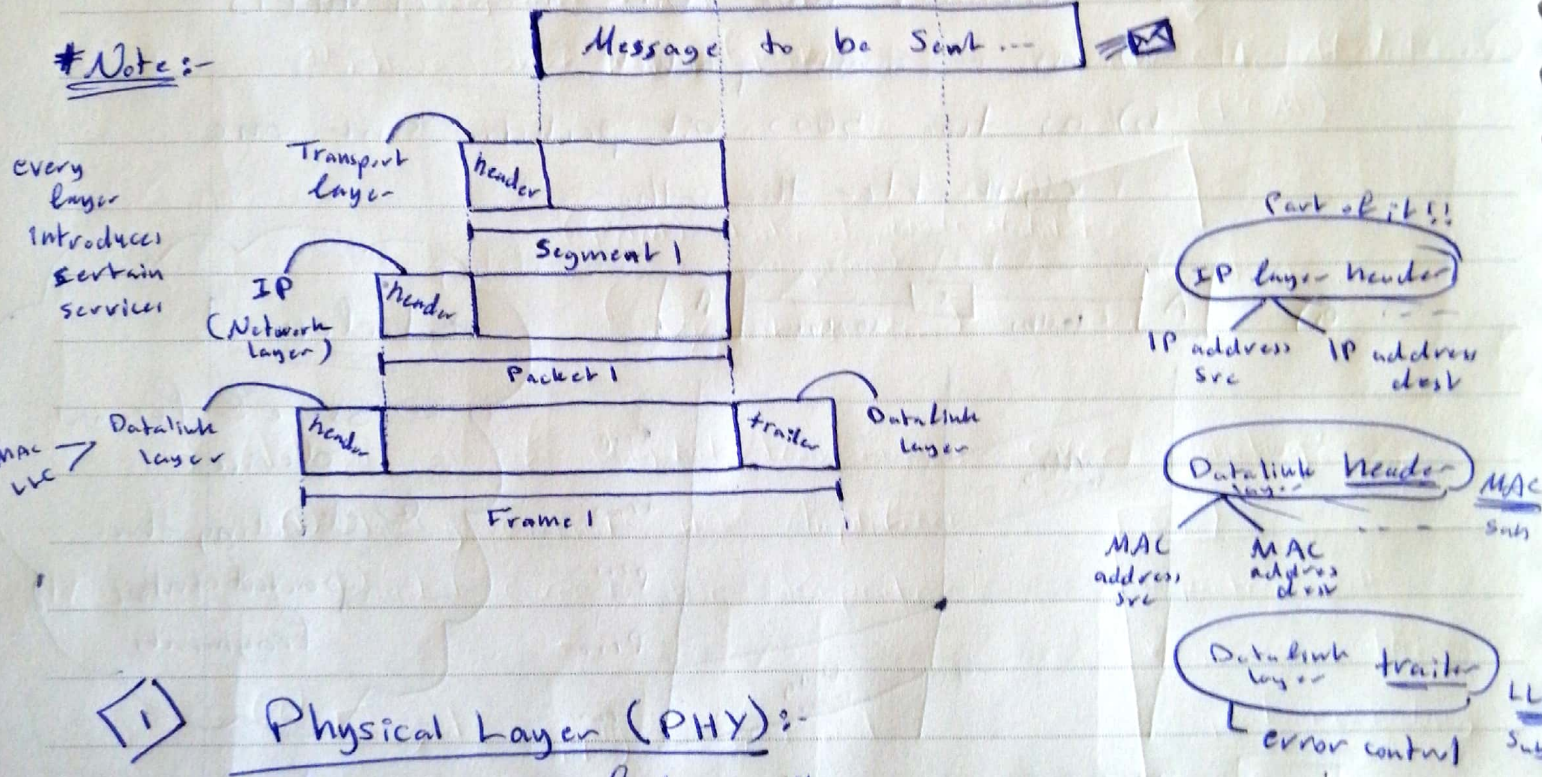 #Note:-
Message to be Sent ...
every
layer
introduces
certain
services
Transport
layer
header
Segment 1
IP
(Network
layer)
header
Packet 1
MAC
LLC
Datalink
layer
header
trailer
Datalink
layer
Frame 1
Part of it!!
IP layer header
IP address
src
IP address
dest
...
Datalink header
layer
MAC
sub
MAC
address
src
MAC
addres
dest
...
Datalink trailer
layer
LL
sub
error control
1 Physical Layer (PHY):-